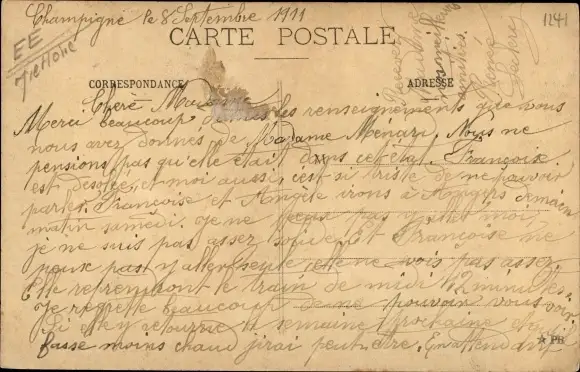 Champigné le 8 Septembre 1911
1241
EE
CARTE POSTALE
CORRESPONDANCE
ADRESSE
Chère
Merci beaucoup les renseignements que vous
nous avez donnés de Madame Ménard. Nous ne
pensions pas qu'elle était dans cet état. Françoise
est désolée, et moi aussi, c'est si triste de ne pouvoir
parler. Françoise et Angèle irons à Angers demain
matin samedi. Je ne pas moi,
je ne suis pas assez solide, Et Françoise ne
peux pas y aller seule elle ne vois pas assez
Elle reprendront le train de midi 12 minutes.
Je regrette beaucoup de ne pouvoir vous voir
Si elle y retourne la semaine prochaine
fasse moins chaud j'irai peut-être. En attendant
Recevez
nos meilleures
amitiés.
PB